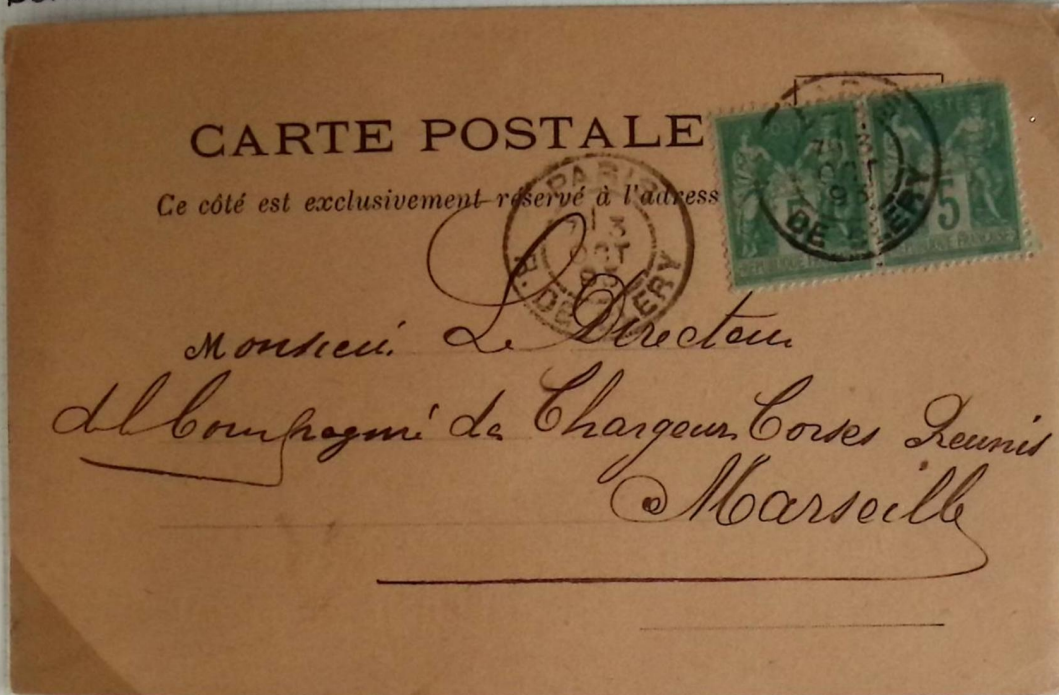 CARTE POSTALE
Ce côté est exclusivement réservé à l'adress
PARIS
OCT
93
R. DE CLERY
POSTE
5
REPUBLIQUE FRANÇAISE
OCT
93
DE CLERY
Monsieur Le Directeur
de la Compagnie des Chargeurs Corses Reunis
a Marseille